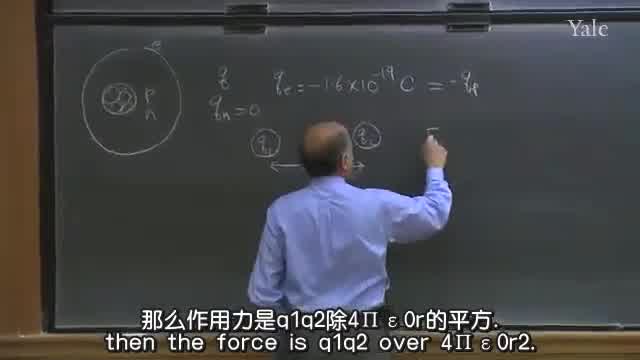 Yale
e
p
n
q
q_e = -1.6 × 10^-19 C = -q_p
q_n = 0
q_1
q_2
F
那么作用力是q1q2除4Πε0r的平方.
then the force is q1q2 over 4Πε0r2.